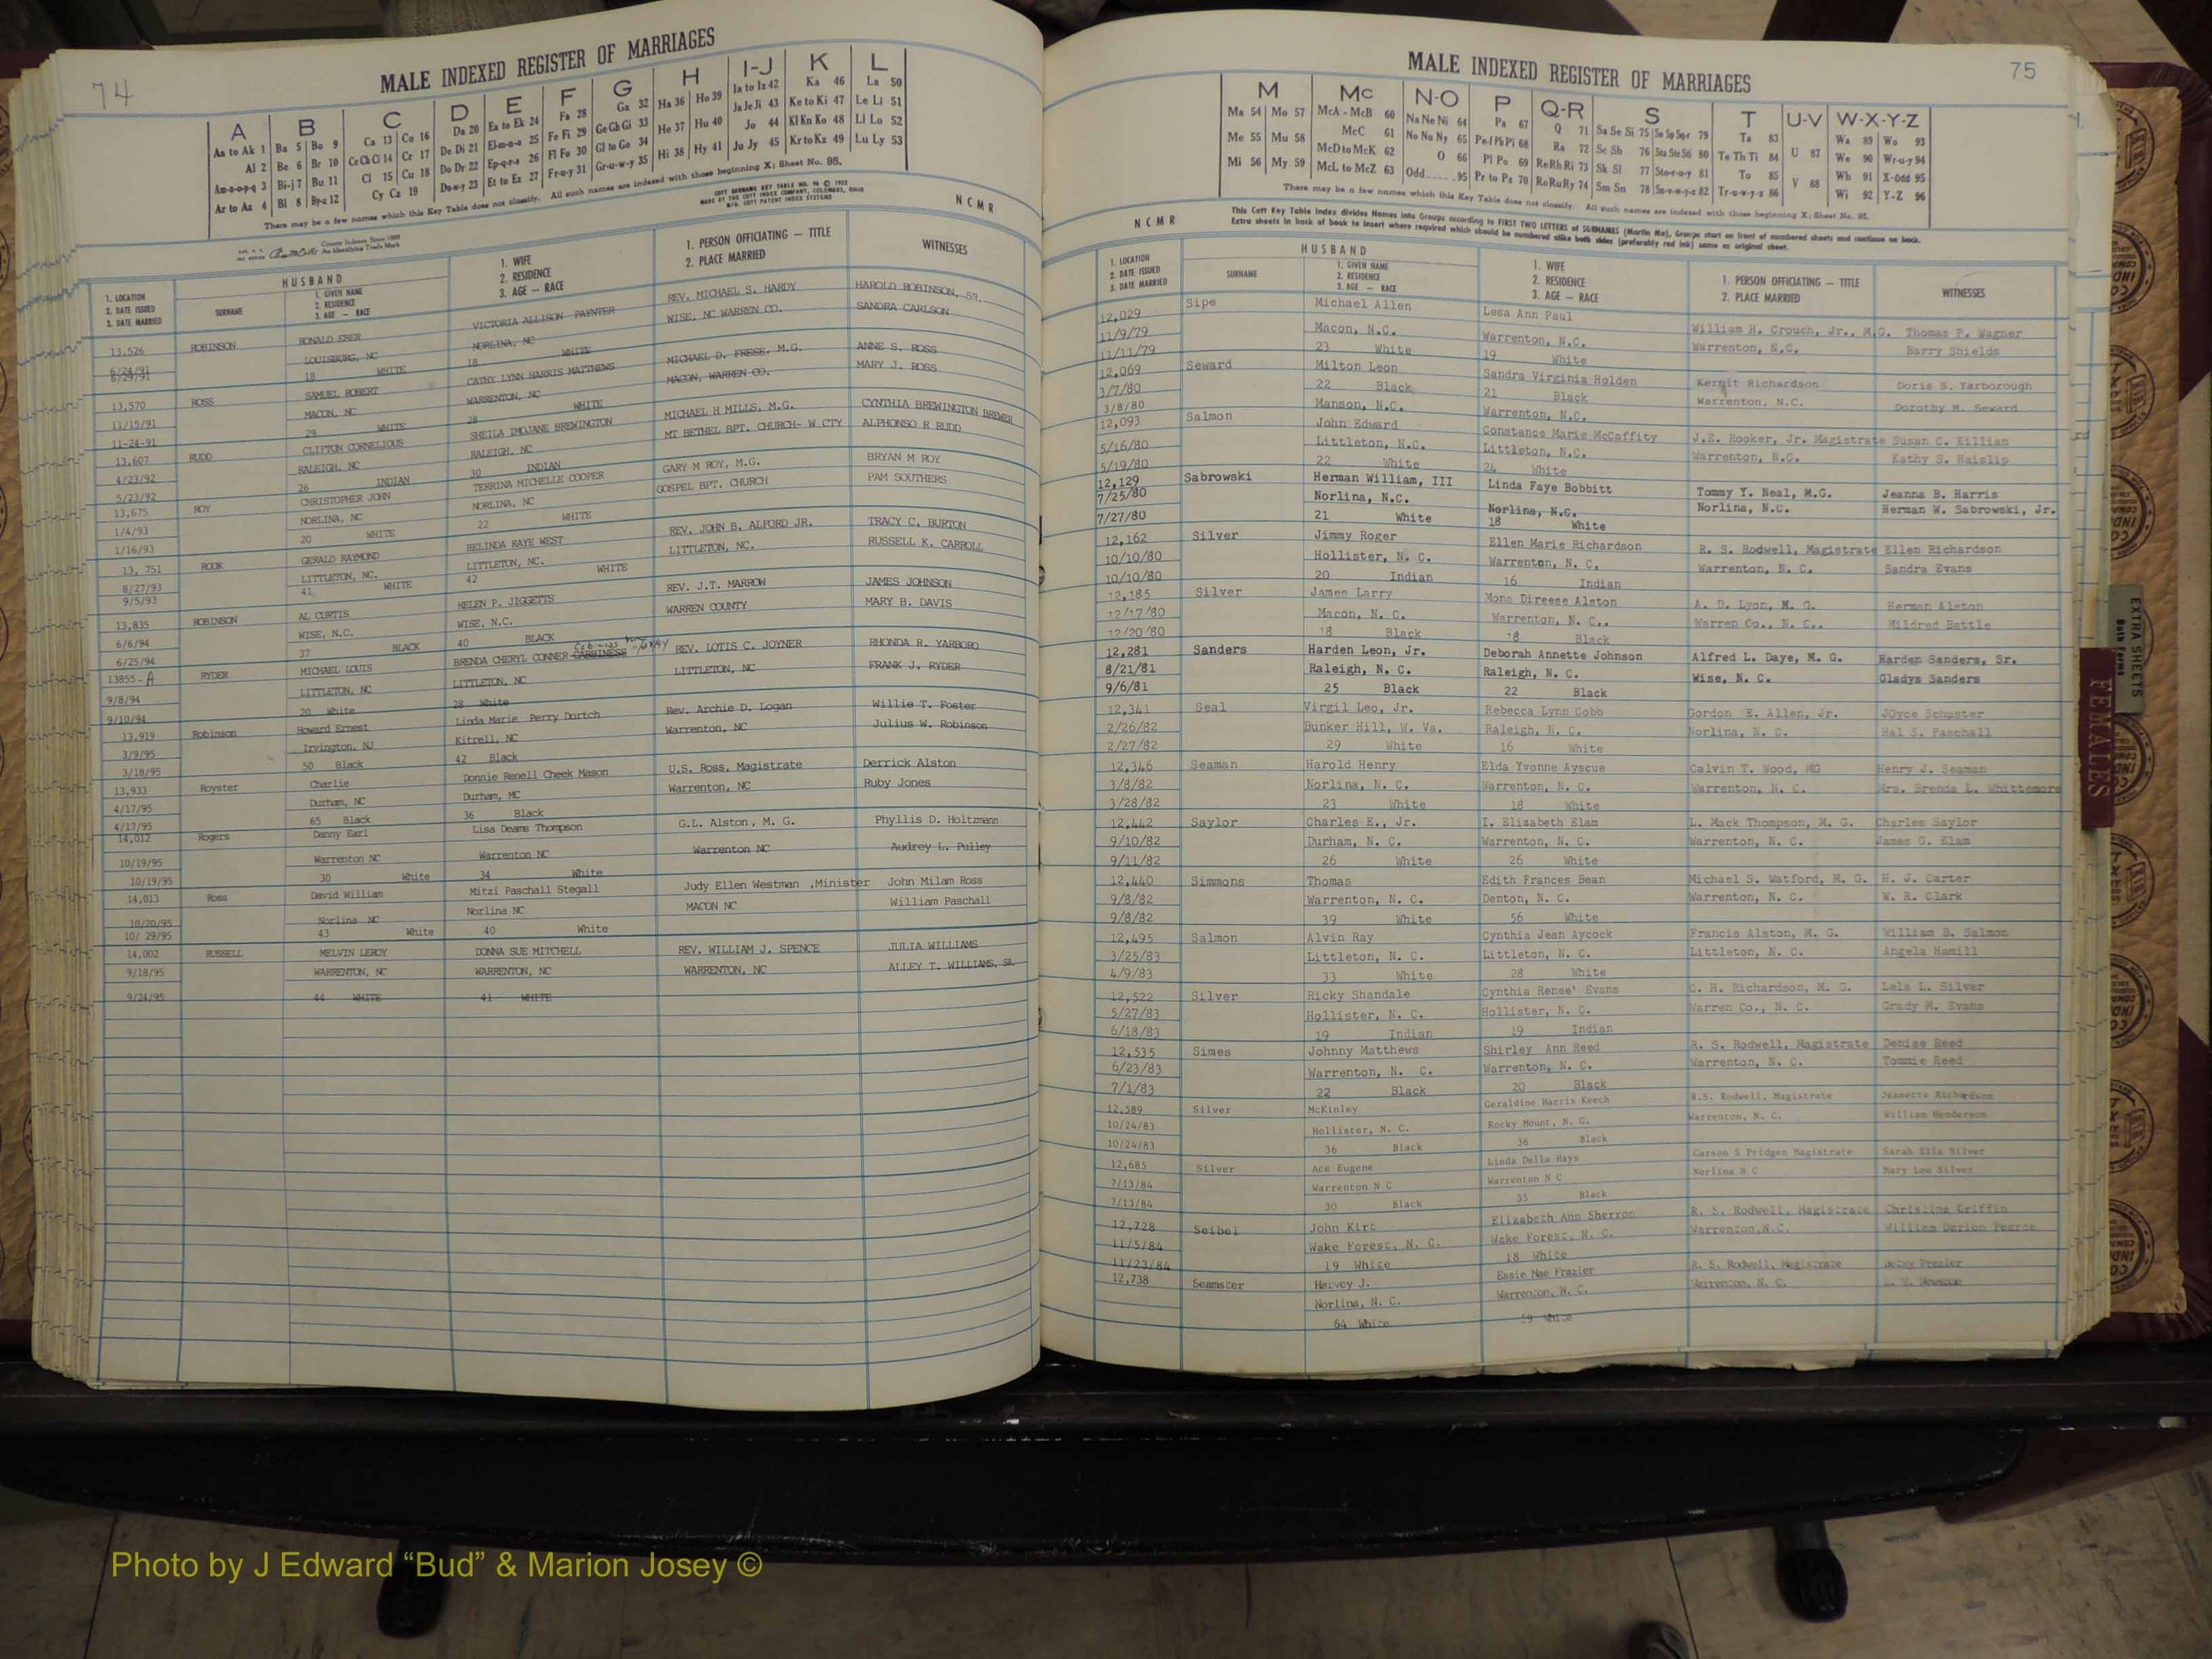 74
MALE INDEXED REGISTER OF MARRIAGES
A B C D E F G H I-J K L
Aa to Ak 1 Ba 5 Bo 9 Ca 13 Co 16 Da 20 Ea to Ek 24 Fa 28 Ga 32 Ha 36 Ho 39 Ia to Iz 42 Ka 46 La 50
Al 2 Be 6 Br 10 Ce Ch Ci 14 Cr 17 De Di 21 El-m-n-o 25 Fe Fi 29 Ge Gh Gi 33 He 37 Hu 40 Ja Je Ji 43 Ke to Ki 47 Le Li 51
Am-n-o-p-q 3 Bi-j 7 Bu 11 Cl 15 Cu 18 Do Dr 22 Ep-q-r-s 26 Fl Fo 30 Gl to Go 34 Hi 38 Hy 41 Jo 44 Kl Kn Ko 48 Ll Lo 52
Ar to Az 4 Bl 8 By-z 12 Cy Cz 19 Du-w-y 23 Et to Ez 27 Fr-u-y 31 Gr-u-w-y 35 Ju Jy 45 Kr to Kz 49 Lu Ly 53
There may be a few names which this Key Table does not classify. All such names are indexed with those beginning X; Sheet No. 95.
N C M R
County Indexes Since 1888
An Identifying Trade Mark
HUSBAND
1. LOCATION 2. DATE ISSUED 3. DATE MARRIED
SURNAME
1. GIVEN NAME 2. RESIDENCE 3. AGE — RACE
1. WIFE 2. RESIDENCE 3. AGE — RACE
1. PERSON OFFICIATING — TITLE 2. PLACE MARRIED
WITNESSES
13,526 ROBINSON RONALD EBER VICTORIA ALLISON PAYNTER REV. MICHAEL S. HARDY HAROLD ROBINSON, SR.
6/24/91 LOUISBURG, NC NORLINA, NC WISE, NC WARREN CO. SANDRA CARLSON
6/29/91 18 WHITE 18 WHITE
13,570 ROSS SAMUEL ROBERT CATHY LYNN HARRIS MATTHEWS MICHAEL D. FRESE, M.G. ANNE S. ROSS
11/15/91 MACON, NC WARRENTON, NC MACON, WARREN CO. MARY J. ROSS
11-24-91 29 WHITE 28 WHITE
13,607 RUDD CLIFTON CORNELIOUS SHEILA IMOJANE BREWINGTON MICHAEL H MILLS, M.G. CYNTHIA BREWINGTON BREWER
4/23/92 RALEIGH, NC RALEIGH, NC MT BETHEL BPT. CHURCH- W CTY ALPHONSO R RUDD
5/23/92 26 INDIAN 30 INDIAN
13,675 ROY CHRISTOPHER JOHN TERRINA MICHELLE COOPER GARY M ROY, M.G. BRYAN M ROY
1/4/93 NORLINA, NC NORLINA, NC GOSPEL BPT. CHURCH PAM SOUTHERS
1/16/93 20 WHITE 22 WHITE
13, 751 ROOK GERALD RAYMOND BELINDA RAYE WEST REV. JOHN B. ALFORD JR. TRACY C. BURTON
8/27/93 LITTLETON, NC. LITTLETON, NC. LITTLETON, NC. RUSSELL K. CARROLL
9/5/93 41 WHITE 42 WHITE
13,835 ROBINSON AL CURTIS HELEN P. JIGGETTS REV. J.T. MARROW JAMES JOHNSON
6/6/94 WISE, N.C. WISE, N.C. WARREN COUNTY MARY B. DAVIS
6/25/94 37 BLACK 40 BLACK
13855-A RYDER MICHAEL LOUIS BRENDA CHERYL CONNER CARBINESS REV. LOTIS C. JOYNER RHONDA R. YARBORO
9/8/94 LITTLETON, NC LITTLETON, NC LITTLETON, NC FRANK J. RYDER
9/10/94 20 White 28 White
13,919 Robinson Howard Ernest Linda Marie Perry Dortch Rev. Archie D. Logan Willie T. Foster
3/9/95 Irvington, NJ Kitrell, NC Warrenton, NC Julius W. Robinson
3/18/95 50 Black 42 Black
13,933 Royster Charlie Donnie Renell Cheek Mason U.S. Ross, Magistrate Derrick Alston
4/17/95 Durham, NC Durham, MC Warrenton, NC Ruby Jones
4/17/95 65 Black 36 Black
14,012 Rogers Danny Earl Lisa Deams Thompson G.L. Alston, M. G. Phyllis D. Holtzmann
10/19/95 Warrenton NC Warrenton NC Warrenton NC Audrey L. Pulley
10/19/95 30 White 34 White
14,013 Ross David William Mitzi Paschall Stegall Judy Ellen Westman ,Minister John Milam Ross
10/20/95 Norlina NC Norlina NC MACON NC William Paschall
10/ 29/95 43 White 40 White
14,002 RUSSELL MELVIN LEROY DONNA SUE MITCHELL REV. WILLIAM J. SPENCE JULIA WILLIAMS
9/18/95 WARRENTON, NC WARRENTON, NC WARRENTON, NC ALLEY T. WILLIAMS, SR.
9/24/95 44 WHITE 41 WHITE
75
MALE INDEXED REGISTER OF MARRIAGES
M Mc N-O P Q-R S T U-V W-X-Y-Z
Ma 54 Mo 57 McA - McB 60 Na Ne Ni 64 Pa 67 Q 71 Sa Se Si 75 So Sp Sq-r 79 Ta 83 Wa 89 Wo 93
Me 55 Mu 58 McC 61 No Nu Ny 65 Pe-f Ph Pi 68 Ra 72 Sc Sh 76 Sta Ste Sti 80 Te Th Ti 84 U 87 We 90 Wr-u-y 94
Mi 56 My 59 McD to McK 62 O 66 Pl Po 69 Re Rh Ri 73 Sk Sl 77 Sto-r-u-y 81 To 85 V 88 Wh 91 X-Odd 95
McL to McZ 63 Odd 95 Pr to Pz 70 Ro Ru Ry 74 Sm Sn 78 Su-v-w-y-z 82 Tr-u-w-y-z 86 Wi 92 Y-Z 96
There may be a few names which this Key Table does not classify. All such names are indexed with those beginning X; Sheet No. 95.
N C M R
This Cott Key Table Index divides Names into Groups according to FIRST TWO LETTERS of SURNAMES (Martin Ma), Groups start on front of numbered sheets and continue on back.
Extra sheets in back of book to insert where required which should be numbered alike both sides (preferably red ink) same as original sheet.
HUSBAND
1. LOCATION 2. DATE ISSUED 3. DATE MARRIED
SURNAME
1. GIVEN NAME 2. RESIDENCE 3. AGE — RACE
1. WIFE 2. RESIDENCE 3. AGE — RACE
1. PERSON OFFICIATING — TITLE 2. PLACE MARRIED
WITNESSES
12,029 Sipe Michael Allen Lesa Ann Paul William H. Crouch, Jr., M.G. Thomas P. Wagner
11/9/79 Macon, N.C. Warrenton, N.C. Warrenton, N.C. Barry Shields
11/11/79 23 White 19 White
12,069 Seward Milton Leon Sandra Virginia Holden Kermit Richardson Doris S. Yarborough
3/7/80 22 Black 21 Black Warrenton, N.C. Dorothy M. Seward
3/8/80 Manson, N.C. Warrenton, N.C.
12,093 Salmon John Edward Constance Marie McCaffity J.E. Rooker, Jr. Magistrate Susan C. Killian
5/16/80 Littleton, N.C. Littleton, N.C. Warrenton, N.C. Kathy S. Haislip
5/19/80 22 White 24 White
12,129 Sabrowski Herman William, III Linda Faye Bobbitt Tommy Y. Neal, M.G. Jeanna B. Harris
7/25/80 Norlina, N.C. Norlina, N.C. Norlina, N.C. Herman W. Sabrowski, Jr.
7/27/80 21 White 18 White
12,162 Silver Jimmy Roger Ellen Marie Richardson R. S. Rodwell, Magistrate Ellen Richardson
10/10/80 Hollister, N. C. Warrenton, N. C, Warrenton, N. C. Sandra Evans
10/10/80 20 Indian 16 Indian
12,185 Silver James Larry Mona Direese Alston A. D. Lyon, M. G. Herman Alston
12/17/80 Macon, N. C. Warrenton, N. C.. Warren Co., N. C.. Mildred Battle
12/20/80 18 Black 18 Black
12,281 Sanders Harden Leon, Jr. Deborah Annette Johnson Alfred L. Daye, M. G. Harden Sanders, Sr.
8/21/81 Raleigh, N. C. Raleigh, N. C. Wise, N. C. Gladys Sanders
9/6/81 25 Black 22 Black
12,341 Seal Virgil Leo, Jr. Rebecca Lynn Cobb Gordon E. Allen, Jr. JOyce Schuster
2/26/82 Bunker Hill, W. Va. Raleigh, N. C. Norlina, N. C. Hal S. Paschall
2/27/82 29 White 16 White
12,346 Seaman Harold Henry Elda Yvonne Ayscue Calvin T. Wood, MG Henry J. Seaman
3/8/82 Norlina, N. C. Warrenton, N. C. Warrenton, N. C. Mrs. Brenda L. Whittemore
3/28/82 23 White 18 White
12,442 Saylor Charles E., Jr. I. Elizabeth Elam L. Mack Thompson, M. G. Charles Saylor
9/10/82 Durham, N. C. Warrenton, N. C. Warrenton, N. C. James G. Elam
9/11/82 26 White 26 White
12,440 Simmons Thomas Edith Frances Bean Michael S. Watford, M. G. H. J. Carter
9/8/82 Warrenton, N. C. Denton, N. C. Warrenton, N. C. W. R. Clark
9/8/82 39 White 56 White
12,495 Salmon Alvin Ray Cynthia Jean Aycock Francis Alston, M. G. William B. Salmon
3/25/83 Littleton, N. C. Littleton, N. C. Littleton, N. C. Angela Hamill
4/9/83 33 White 28 White
12,522 Silver Ricky Shandale Cynthia Renee' Evans C. H. Richardson, M. G. Lela L. Silver
5/27/83 Hollister, N. C. Hollister, N. C. Warren Co., N. C. Grady M. Evans
6/18/83 19 Indian 19 Indian
12,535 Simes Johnny Matthews Shirley Ann Reed R. S. Rodwell, Magistrate Denise Reed
6/23/83 Warrenton, N. C. Warrenton, N. C. Warrenton, N. C. Tommie Reed
7/1/83 22 Black 20 Black
12,589 Silver McKinley Geraldine Harris Keech R.S. Rodwell, Magistrate Jeanette Richardson
10/24/83 Hollister, N. C. Rocky Mount, N. C. Warrenton, N. C. William Henderson
10/24/83 36 Black 36 Black
12,685 Silver Ace Eugene Linda Della Hays Carson S Pridgen Magistrate Sarah Ella Silver
7/13/84 Warrenton N C Warrenton N C Norlina N C Mary Lou Silver
7/13/84 30 Black 35 Black
12,728 Seibel John Kirt Elizabeth Ann Sherron R. S. Rodwell, Magistrate Christina Griffin
11/5/84 Wake Forest, N. C. Wake Forest, N. C. Warrenton,N.C. William Darion Pearce
11/23/84 19 White 18 White
12,738 Seamster Harvey J. Essie Mae Frazier R. S. Rodwell, Magistrate Frazier
Norlina, N. C. Warrenton, N. C. Warrenton, N. C.
64 White 59 White
EXTRA SHEETS
FEMALES
Photo by J Edward “Bud” & Marion Josey ©